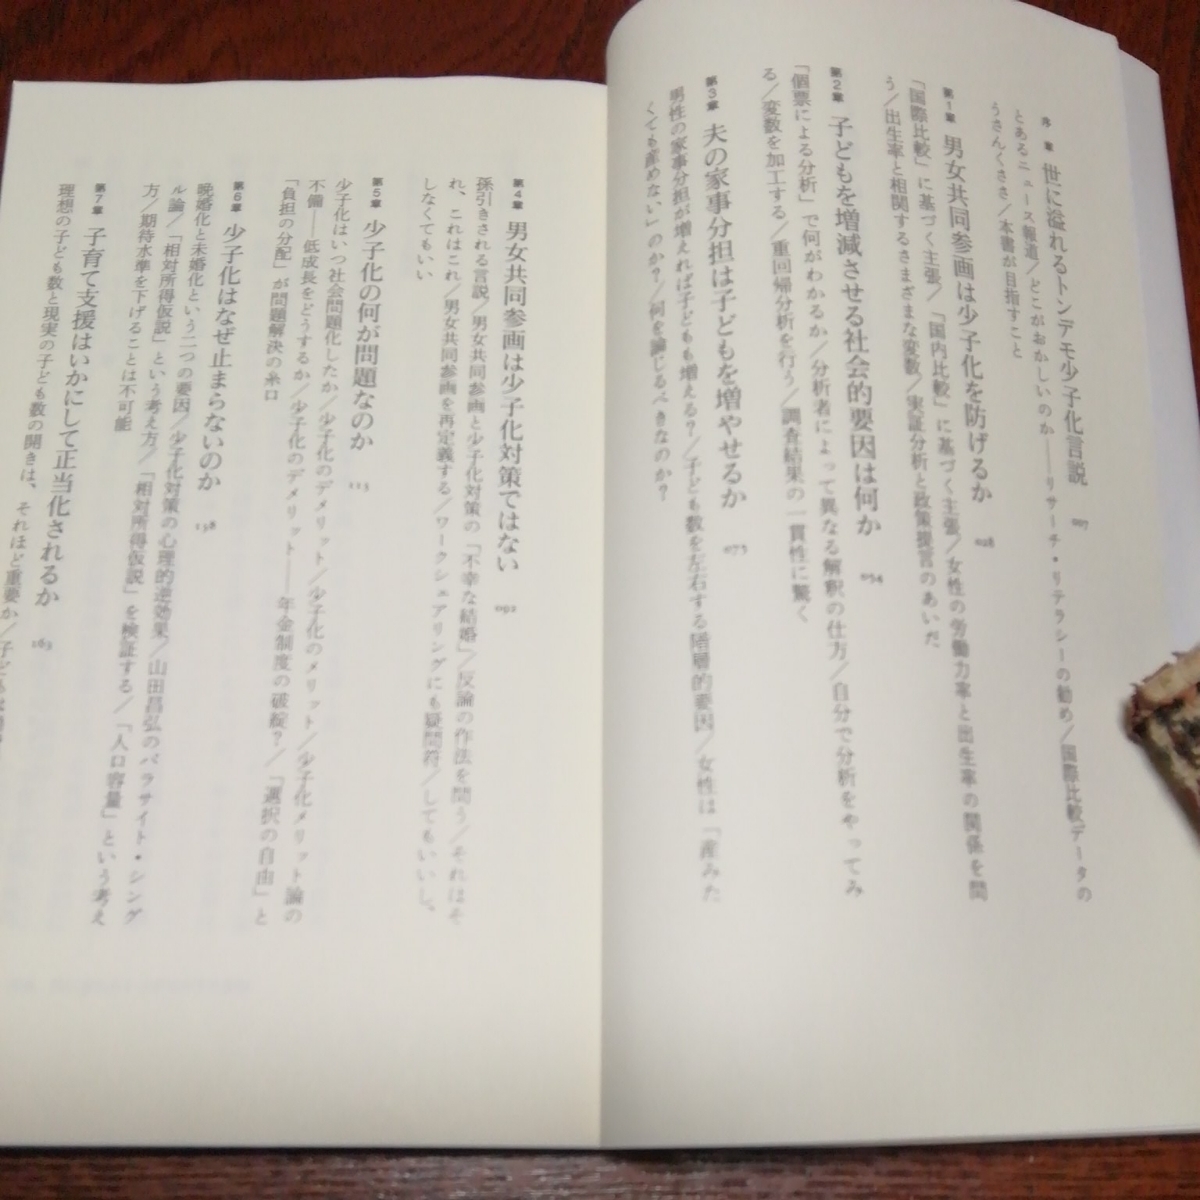 序章 世に溢れるトンデモ少子化言説 007
とあるニュース報道/どこがおかしいのか――リサーチ・リテラシーの勧め/国際比較データの
うさんくささ/本書が目指すこと
第1章 男女共同参画は少子化を防げるか 028
「国際比較」に基づく主張/「国内比較」に基づく主張/女性の労働力率と出生率の関係を問
う/出生率と相関するさまざまな変数/実証分析と政策提言のあいだ
第2章 子どもを増減させる社会的要因は何か 054
「個票による分析」で何がわかるか/分析者によって異なる解釈の仕方/自分で分析をやってみ
る/変数を加工する/重回帰分析を行う/調査結果の一貫性に驚く
第3章 夫の家事分担は子どもを増やせるか 073
男性の家事分担が増えれば子どもも増える?/子ども数を左右する階層的要因/女性は「産みた
くても産めない」のか?/何を論じるべきなのか?
第4章 男女共同参画は少子化対策ではない 092
孫引きされる言説/男女共同参画と少子化対策の「不幸な結婚」/反論の作法を問う/それはそ
れ、これはこれ/男女共同参画を再定義する/ワークシェアリングにも疑問符/してもいいし、
しなくてもいい
第5章 少子化の何が問題なのか 113
少子化はいつ社会問題化したか/少子化のデメリット/少子化のメリット/少子化メリット論の
不備――低成長をどうするか/少子化のデメリット――年金制度の破綻?/「選択の自由」と
「負担の分配」が問題解決の糸口
第6章 少子化はなぜ止まらないのか 138
晩婚化と未婚化という二つの要因/少子化対策の心理的逆効果/山田昌弘のパラサイト・シング
ル論/「相対所得仮説」という考え方/「相対所得仮説」を検証する/「人口容量」という考え
方/期待水準を下げることは不可能
第7章 子育て支援はいかにして正当化されるか 163
理想の子ども数と現実の子ども数の開きは、それほど重要か/子どもは